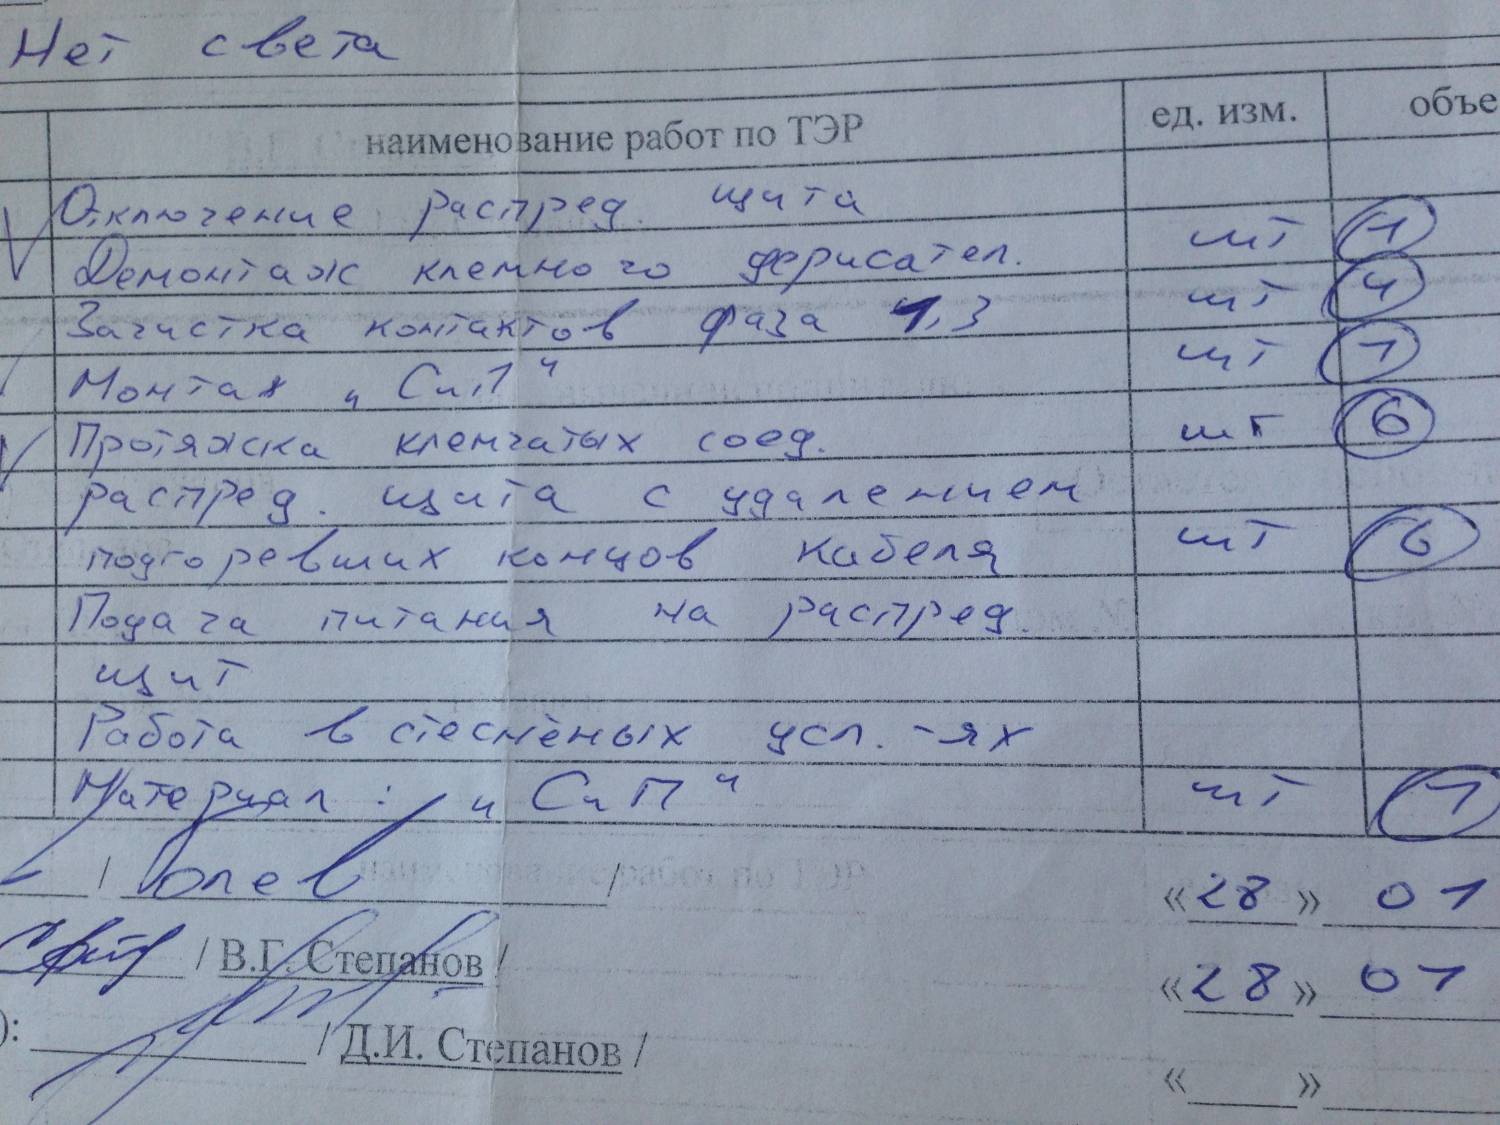 Нет света
наименование работ по ТЭР ед. изм. объе
Отключение распред. щита
Демонтаж клемного держател. шт 1
Зачистка контактов фаза 1,3 шт 4
Монтаж „СиП" шт 1
Протяжка клемчатых соед. шт 6
распред. щита с удалением
подгоревших концов кабеля шт 6
Подача питания на распред.
щит
Работа в стеснёных усл.-ях
Материал: „СиП" шт 1
/ / «28» 01
/ В.Г. Степанов / «28» 01
): / Д.И. Степанов / « »